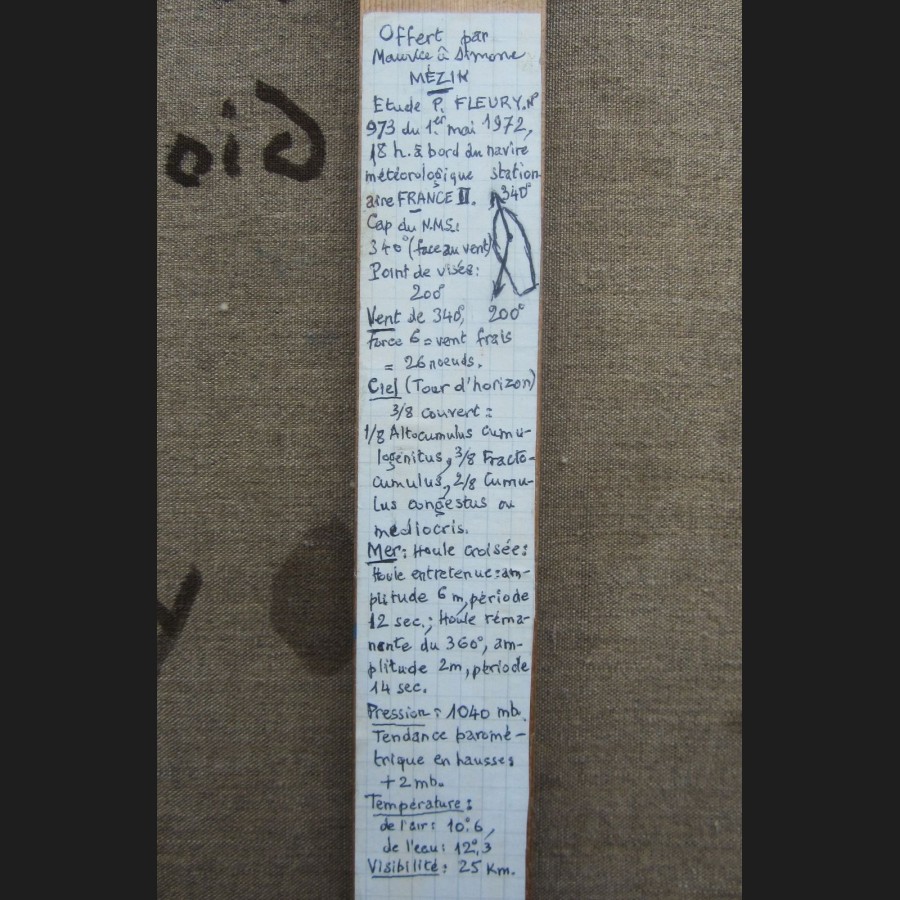 Offert par
Maurice à Simone
MÉZIN
Etude P. FLEURY. N°
973 du 1er mai 1972,
18 h. à bord du navire
météorologique station-
aire FRANCE II.
340°
Cap du N.M.S.:
340° (face au vent)
Point de visée:
200°
200°
Vent de 340°,
force 6 = vent frais
= 26 noeuds.
Ciel (Tour d'horizon)
3/8 couvert:
1/8 Altocumulus cumu-
logenitus, 3/8 Fracto-
cumulus, 2/8 Cumu-
lus congestus ou
mediocris.
Mer: Houle croisée:
Houle entretenue: am-
plitude 6 m, période
12 sec.; Houle réma-
nente du 360°, am-
plitude 2m, période
14 sec.
Pression: 1040 mb.
Tendance baromé-
trique en hausse:
+2 mb.
Température:
de l'air: 10°.6,
de l'eau: 12°,3
Visibilité: 25 Km.